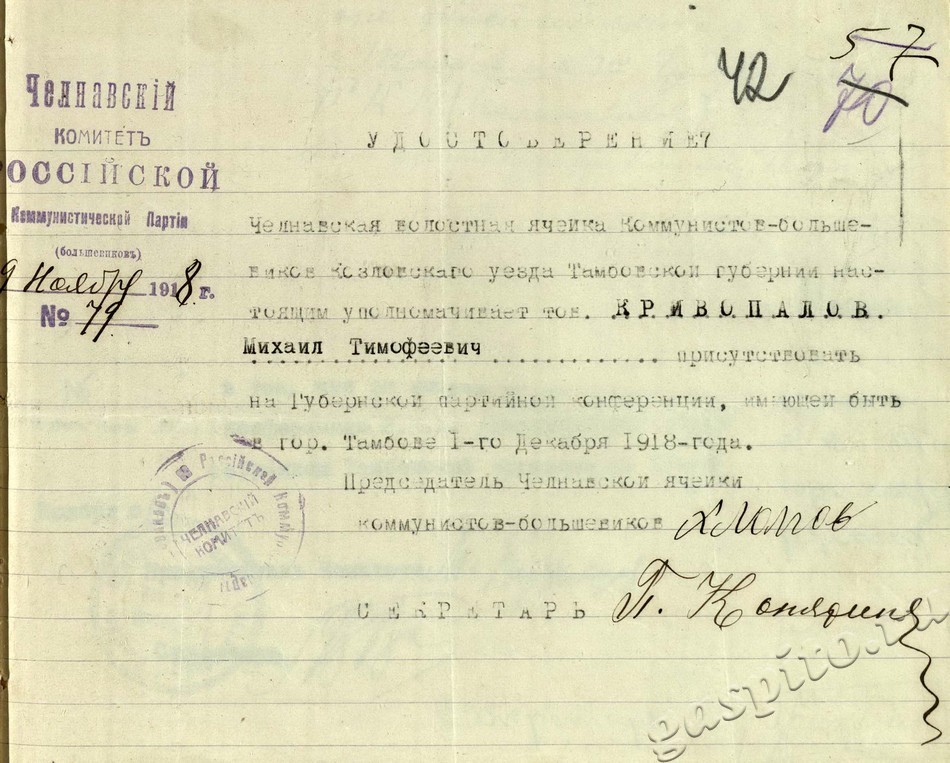 42
57
70
Челнавскiй
КОМИТЕТЪ
РОССIЙСКОЙ
Коммунистической Партiи
(большевиковъ)
9 Ноября 1918 г.
№ 79
УДОСТОВЕРЕНИЕ
Челнавская волостная ячейка Коммунистов-больше-
виков Козловскаго уезда Тамбовской губернии нас-
тоящим уполномачивает тов. КРИВОПАЛОВ.
Михаил Тимофеевич присутствовать
на Губернской партийной конференции, имеющей быть
в гор. Тамбове 1-го Декабря 1918-года.
Председатель Челнавской ячейки
коммунистов-большевиков Хлопов
СЕКРЕТАРЬ П.
Россiйской Комму
ЧЕЛНАВСКIЙ
КОМИТЕТЪ
gaspito.ru